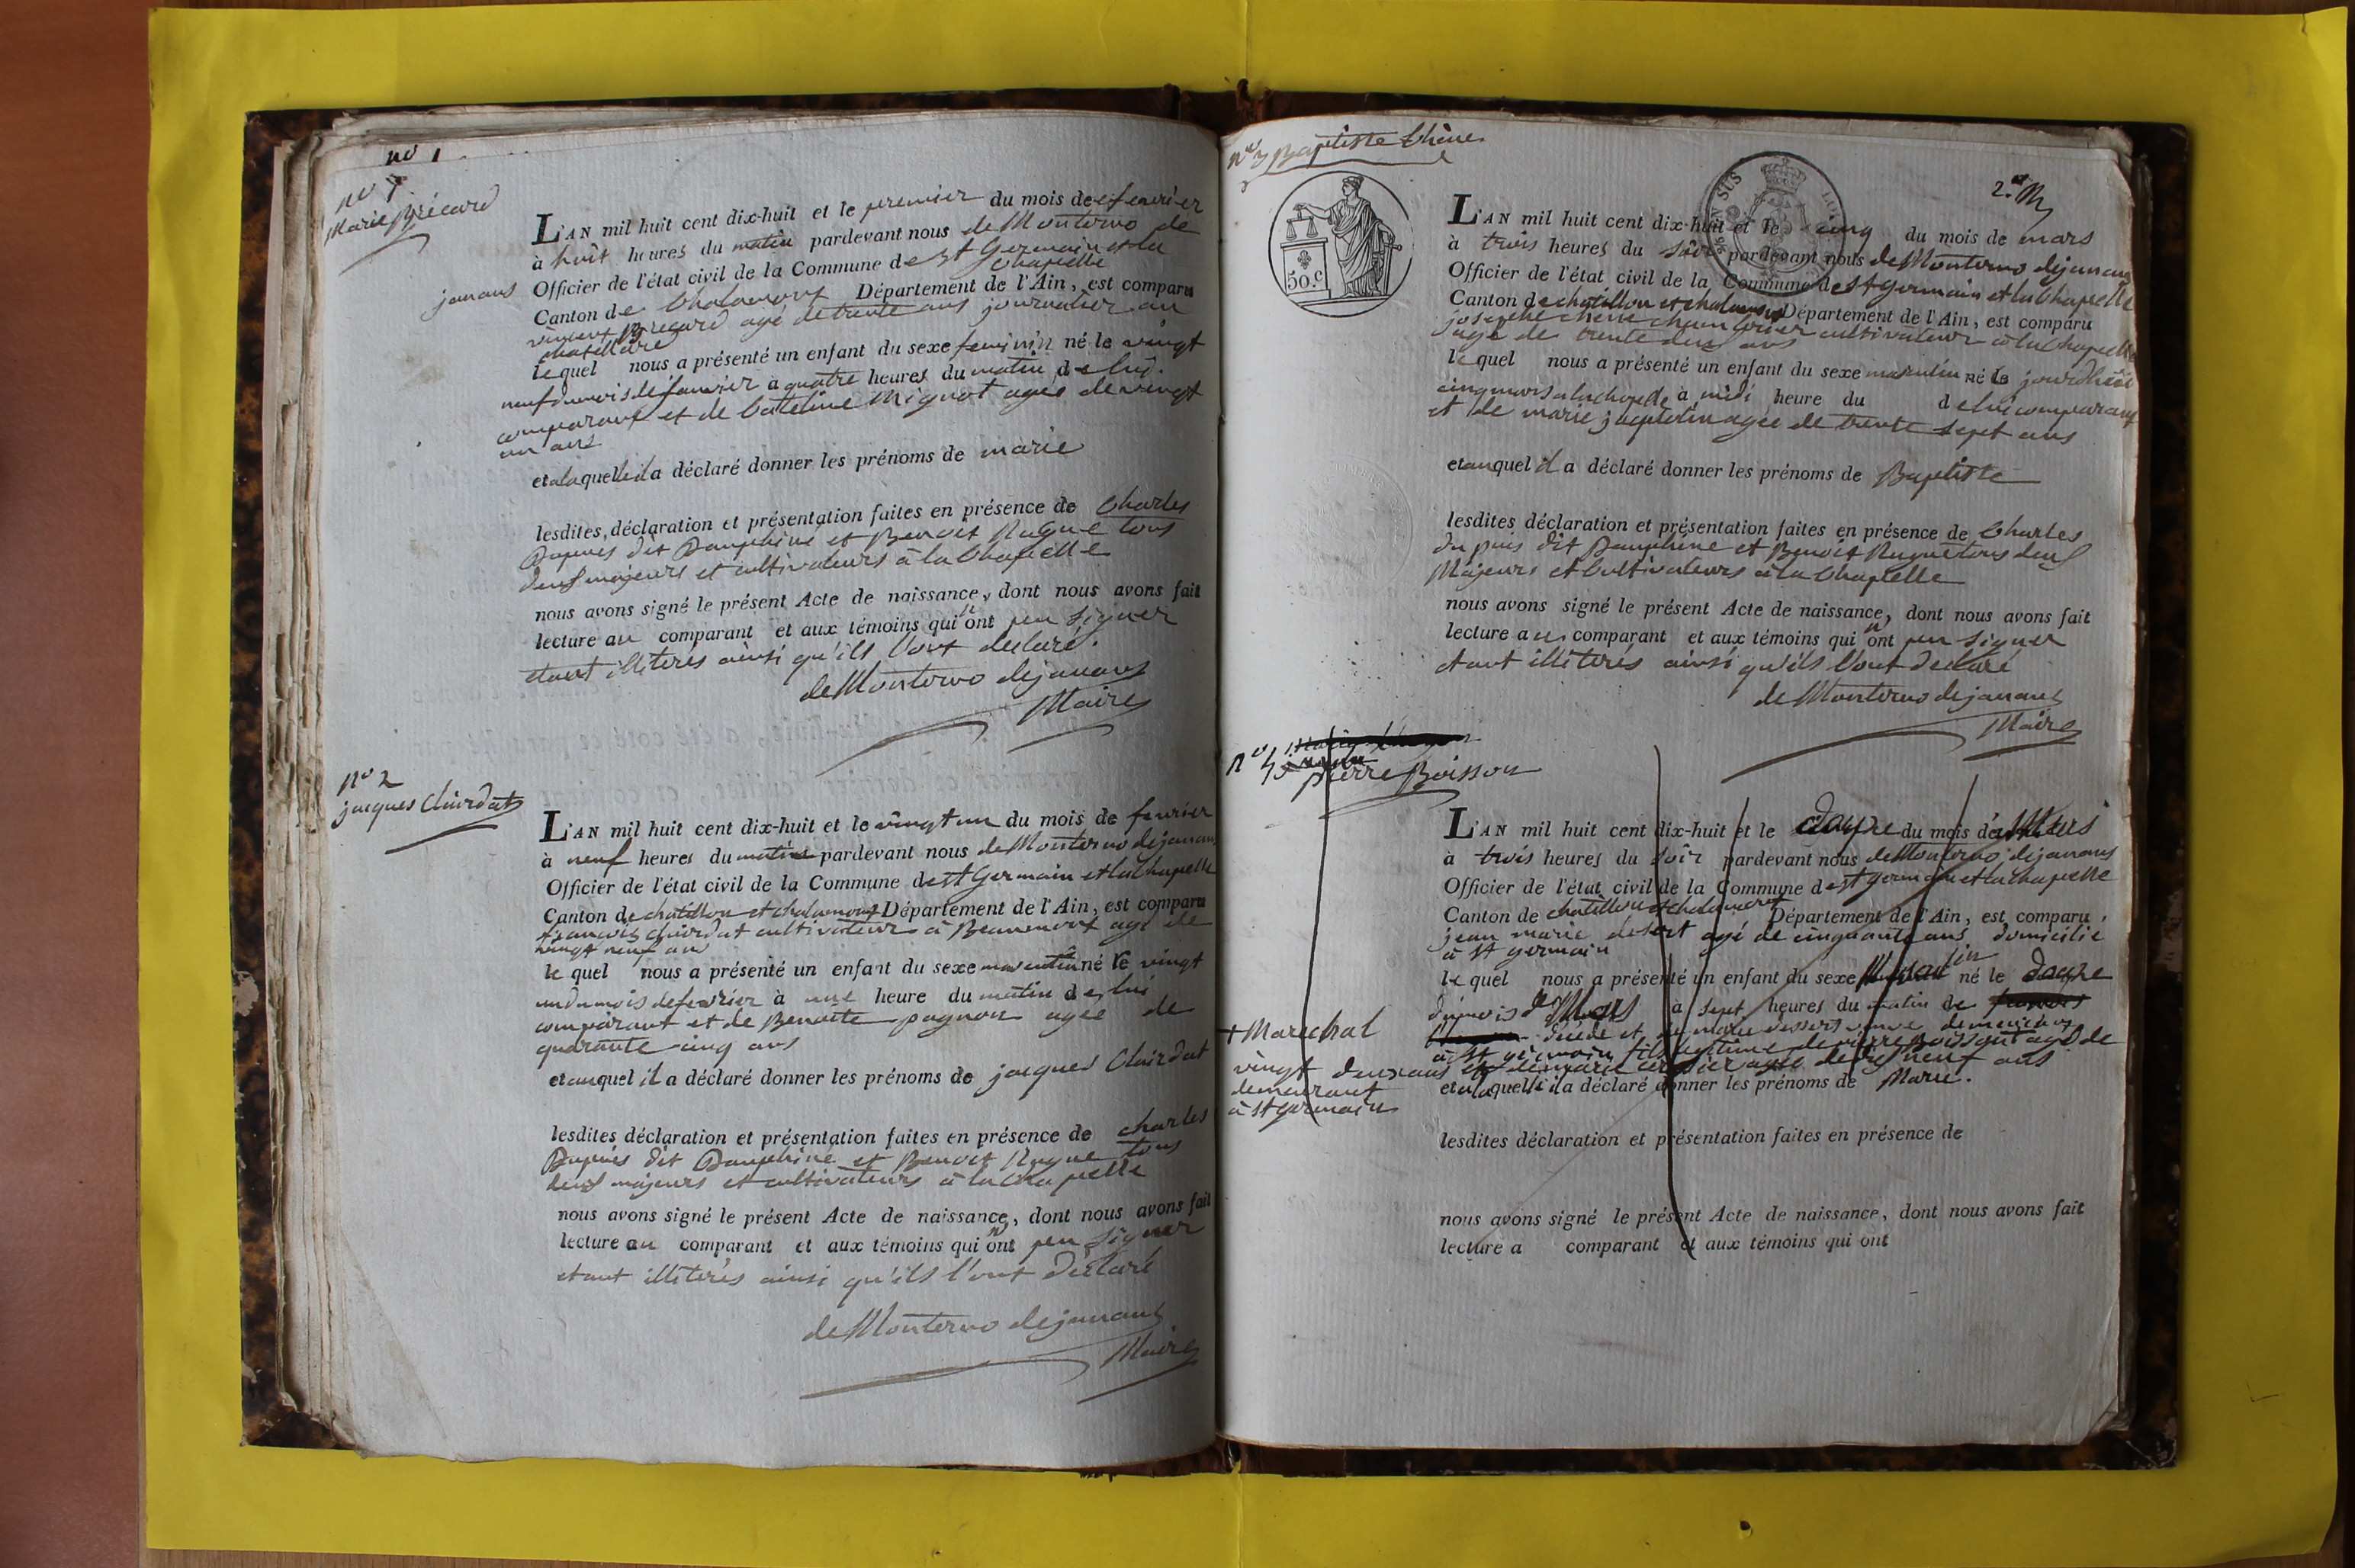 no 1
no 1
Marie Brecard
L'AN mil huit cent dix-huit et le premier du mois de fevrier
à huit heures du matin pardevant nous de Monterno de
janans Officier de l'état civil de la Commune de st Germain et la
chapelle
Canton de Chalamont Département de l'Ain, est comparu
vincent Brecard agé de trente ans journalier au
chatellare
le quel nous a présenté un enfant du sexe feminin né le vingt
neuf du mois de janvier à quatre heures du matin de lui
comparant et de Cateline Mignot agée de vingt
un ans
et a laquelle il a déclaré donner les prénoms de marie
lesdites déclaration et présentation faites en présence de Charles
Dupuis dit Dauphiné et Benoit Nugue tous
deux majeurs et cultivateurs à la Chapelle
nous avons signé le présent Acte de naissance, dont nous avons fait
lecture au comparant et aux témoins qui n'ont peu signer
etant illiterés ainsi qu'ils l'ont declaré.
de Monterno dejanans
Maire
no 2
jacques Clairdat
L'AN mil huit cent dix-huit et le vingt un du mois de fevrier
à neuf heures du matin pardevant nous de Monterno dejanans
Officier de l'état civil de la Commune de st Germain et la Chapelle
Canton de chatillon et chalamont Département de l'Ain, est comparu
françois Clairdat cultivateur à Beaumont agé de
vingt neuf ans
le quel nous a présenté un enfant du sexe masculin né le vingt
un du mois de fevrier à une heure du matin de lui
comparant et de Benoite pagnon agée de
quarante cinq ans
et auquel il a déclaré donner les prénoms de jacques Clairdat
lesdites déclaration et présentation faites en présence de charles
Dupuis dit Dauphine et Benoit Nugue tous
deux majeurs et cultivateurs à la Chapelle
nous avons signé le présent Acte de naissance, dont nous avons fait
lecture au comparant et aux témoins qui n'ont peu signer
etant illiterés ainsi qu'ils l'ont declaré
de Monterno dejanans
Maire
no 3 Baptiste Chêne
50.c
2.e
L'AN mil huit cent dix-huit et le cinq du mois de mars
à trois heures du soir pardevant nous de Monterno dejanans
Officier de l'état civil de la Commune de st germain et la Chapelle
Canton de chatillon et chalamont Département de l'Ain, est comparu
josephe chêne cultivateur à la Chapelle
agé de trente deux ans
le quel nous a présenté un enfant du sexe masculin né le jourdhui
cinq mars a la chapelle à midi heure du de lui comparant
et de marie agée de trente sept ans
et auquel il a déclaré donner les prénoms de Baptiste
lesdites déclaration et présentation faites en présence de Charles
du puis dit Dauphine et Benoit Nugue tous deux
Majeurs et Cultivateurs à la Chapelle
nous avons signé le présent Acte de naissance, dont nous avons fait
lecture au comparant et aux témoins qui n'ont peu signer
etant illiterés ainsi qu'ils l'ont declaré
de Monterno dejanans
Maire
no 4
pierre Boisson
L'AN mil huit cent dix-huit et le douze du mois de Mars
à trois heures du soir pardevant nous de Monterno dejanans
Officier de l'état civil de la Commune de st germain et la chapelle
Canton de chatillon et chalamont Département de l'Ain, est comparu
jean marie desert agé de cinquante ans domicilié
à st germain
le quel nous a présenté un enfant du sexe Masculin né le douze
du mois de Mars à sept heures du matin de
à st germain fils legitime de pierre Boisson agé de
+ Marechal
vingt deux ans et de marie agée de dix neuf ans
demeurant
à st germain
et a laquelle il a déclaré donner les prénoms de Marie.
lesdites déclaration et présentation faites en présence de
nous avons signé le présent Acte de naissance, dont nous avons fait
lecture a comparant et aux témoins qui ont